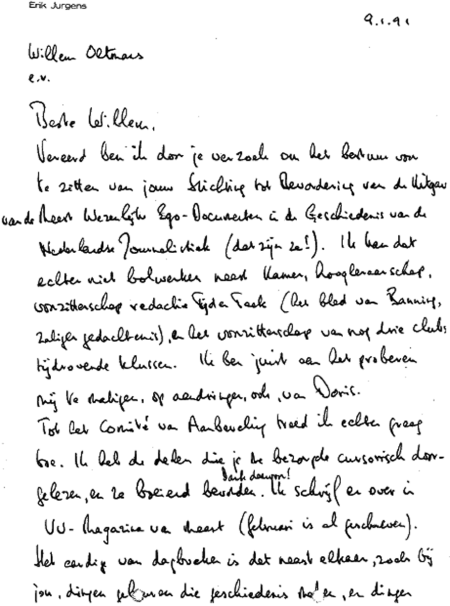 Erik Jurgens
9.1.91
Willem Oltmans
e.v.
Beste Willem,
Vereerd ben ik door je verzoek om het bestuur voor
te zitten van jouw Stichting tot Bevordering van de Uitgave
van de Meest Wezenlijke Ego-Documenten in de Geschiedenis van de
Nederlandse Journalistiek (dat zijn ze!). Ik kan dat
echter niet bolwerken naast Kamer, hoogleraarschap,
voorzitterschap redactie Tijd en Taak (het blad van Banning,
zaliger gedachtenis), en het voorzitterschap van nog drie clubs
tijdrovende klussen. Ik ben juist aan het proberen
mij te matigen, op aandringen, ook, van Doris.
Tot het Comité van Aanbeveling treed ik echter graag
toe. Ik heb de delen die je me bezorgde cursorisch door-
dank daarvoor!
gelezen, en ze boeiend bevonden. Ik schrijf er over in
VU-Magazine van maart (februari is al geschreven).
Het aardige van dagboeken is dat naast elkaar, zoals bij
jou, dingen gebeuren die geschiedenis maken, en dingen